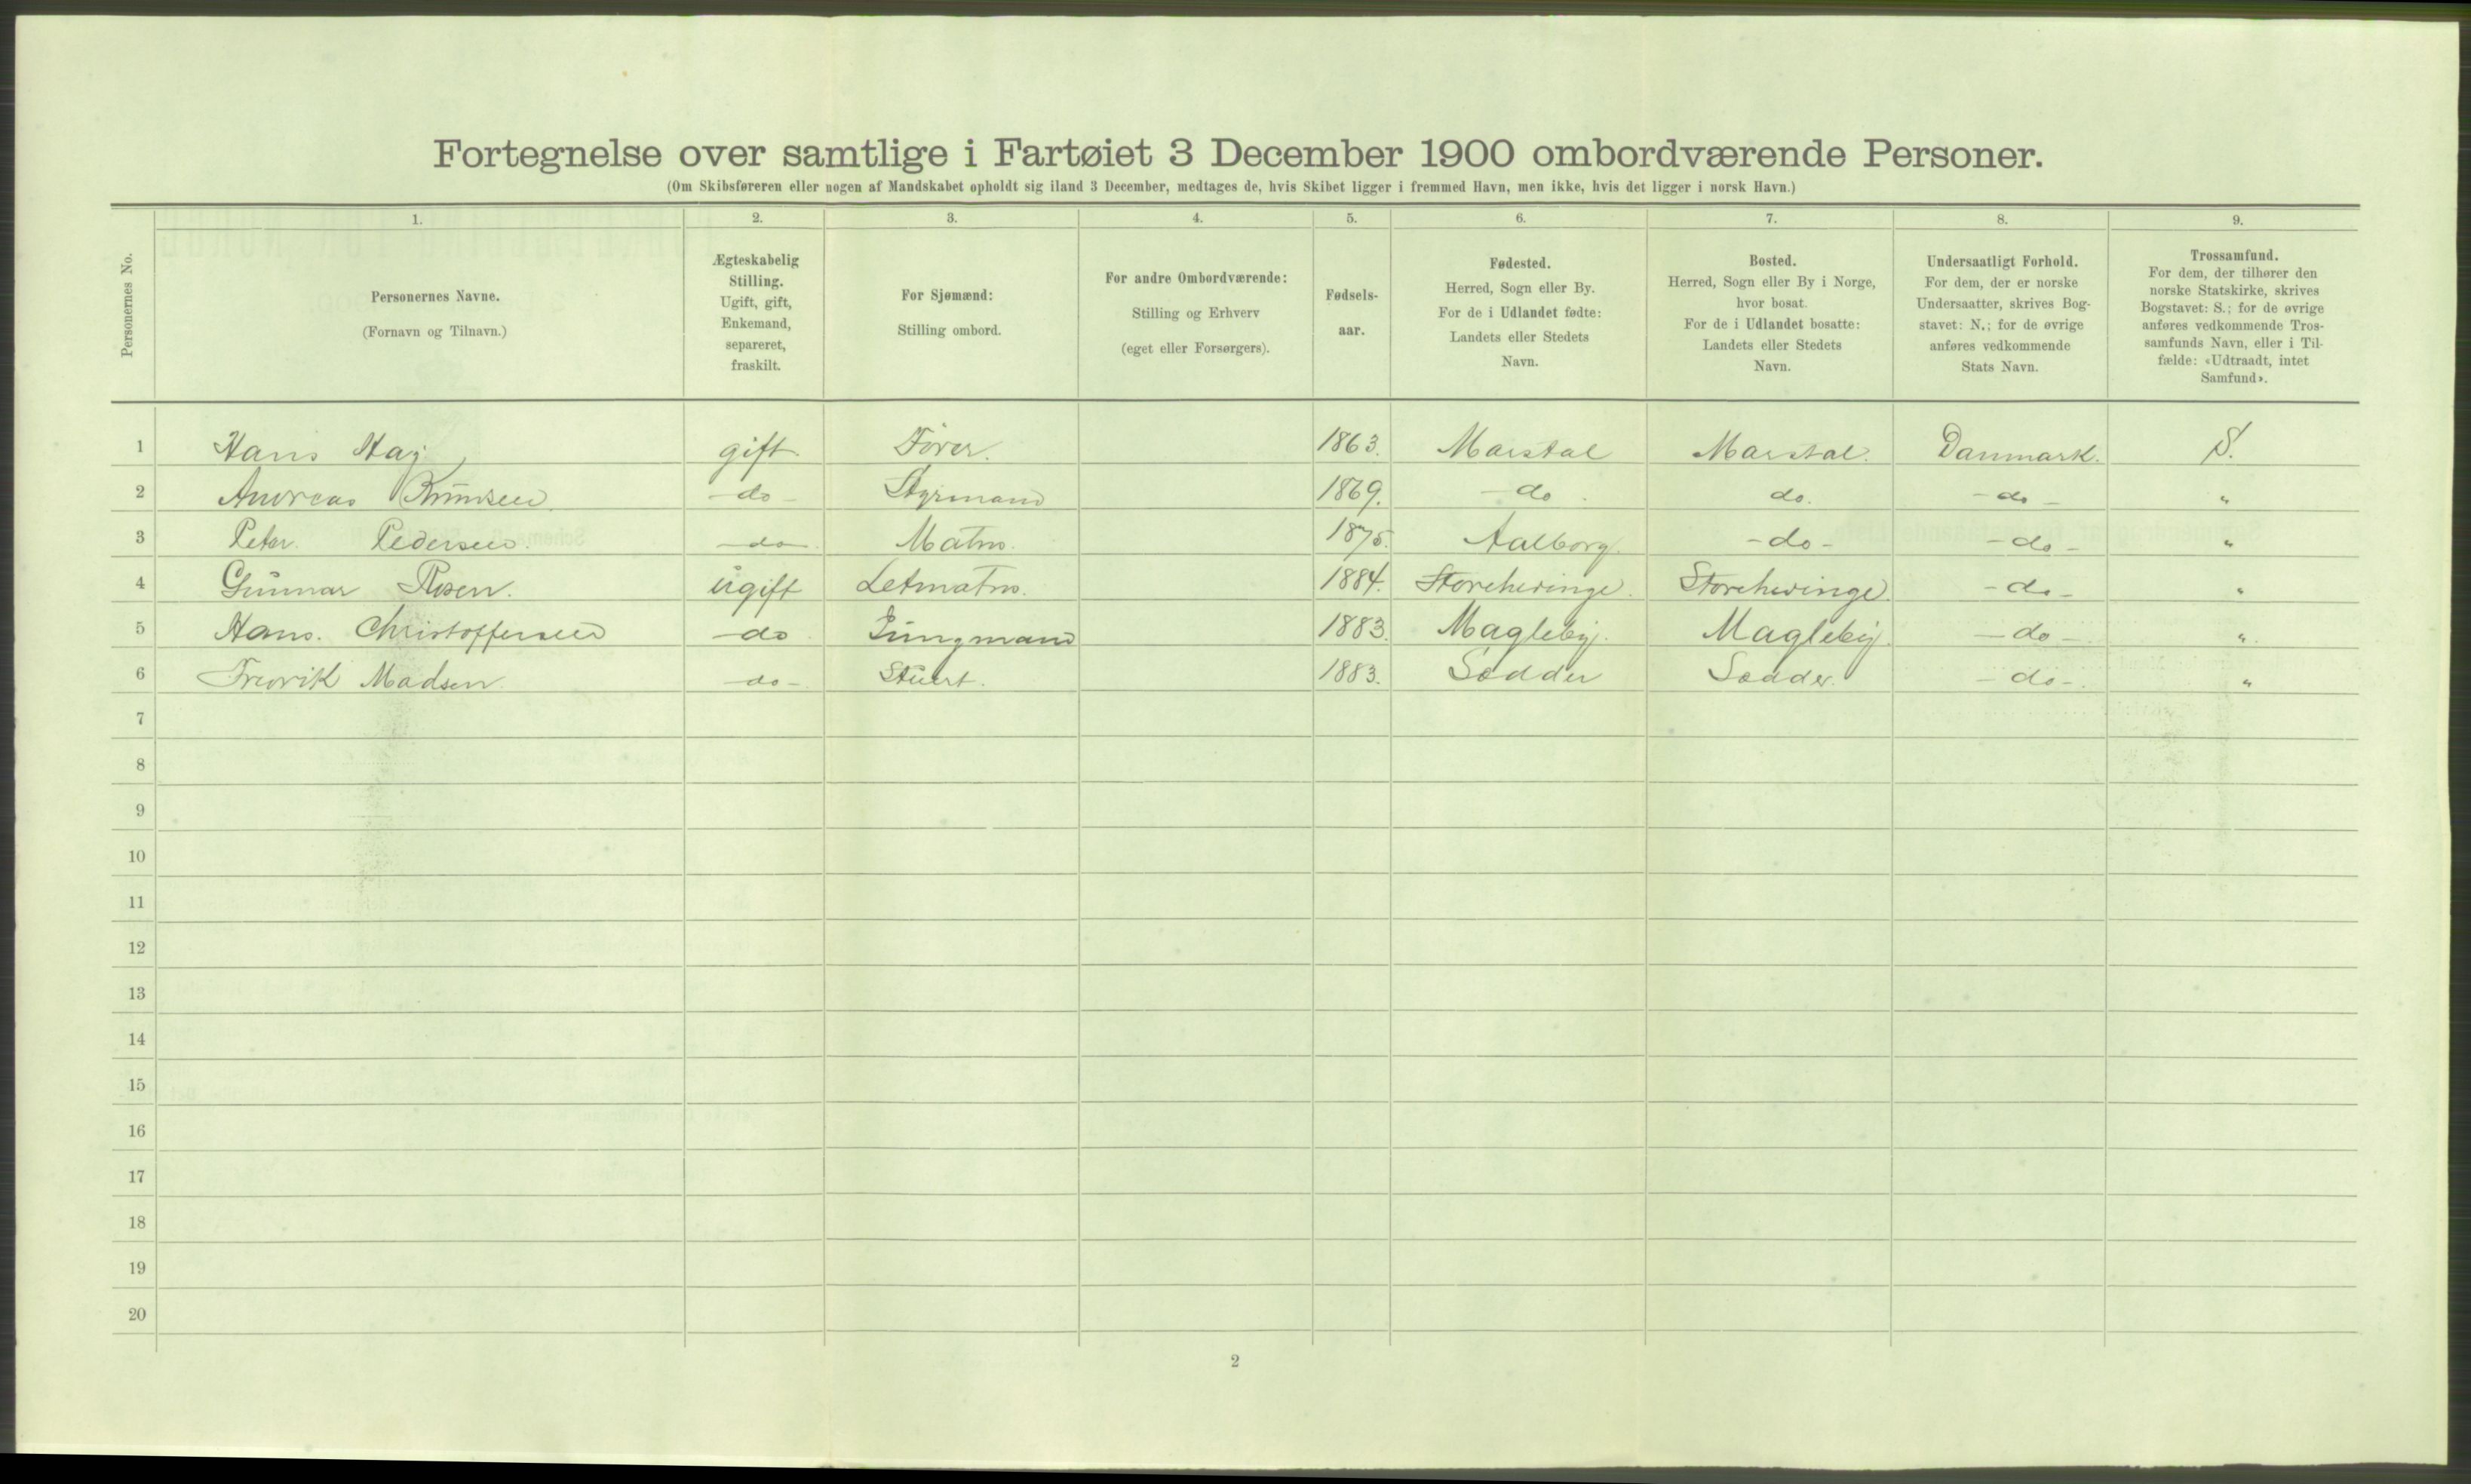 Fortegnelse over samtlige i Fartøiet 3 December 1900 ombordværende Personer.
(Om Skibsføreren eller nogen af Mandskabet opholdt sig iland 3 December, medtages de, hvis Skibet ligger i fremmed Havn, men ikke, hvis det ligger i norsk Havn.)
Personernes No.
1.
Personernes Navne.
(Fornavn og Tilnavn.)
2.
Ægteskabelig
Stilling.
Ugift, gift,
Enkemand,
separeret,
fraskilt.
3.
For Sjømænd:
Stilling ombord.
4.
For andre Ombordværende:
Stilling og Erhverv
(eget eller Forsørgers).
5.
Fødsels-
aar.
6.
Fødested.
Herred, Sogn eller By.
For de i Udlandet fødte:
Landets eller Stedets
Navn.
7.
Bosted.
Herred, Sogn eller By i Norge,
hvor bosat.
For de i Udlandet bosatte:
Landets eller Stedets
Navn.
8.
Undersaatligt Forhold.
For dem, der er norske
Undersaatter, skrives Bog-
stavet: N.; for de øvrige
anføres vedkommende
Stats Navn.
9.
Trossamfund.
For dem, der tilhører den
norske Statskirke, skrives
Bogstavet: S.; for de øvrige
anføres vedkommende Tros-
samfunds Navn, eller i Til-
fælde: «Udtraadt, intet
Samfund».
1 Hans gift. Fører. 1863. Marstal Marstal. Danmark. S.
2 Andreas -do- Styrmand 1869. -do. do. -do- "
3 Peter. Pedersen. -do- Matro. 1875. Aalborg. -do- -do- "
4 Gunnar Rosen. ugift Letmatro. 1884. Storehedinge. Storehedinge. -do- "
5 Hans. Christoffersen -do. Jungmand 1883. Magleby. Magleby. -do- "
6 Fredrik Madsen. -do- Stuert. 1883. Sædder Sædder. -do- "
7
8
9
10
11
12
13
14
15
16
17
18
19
20
2